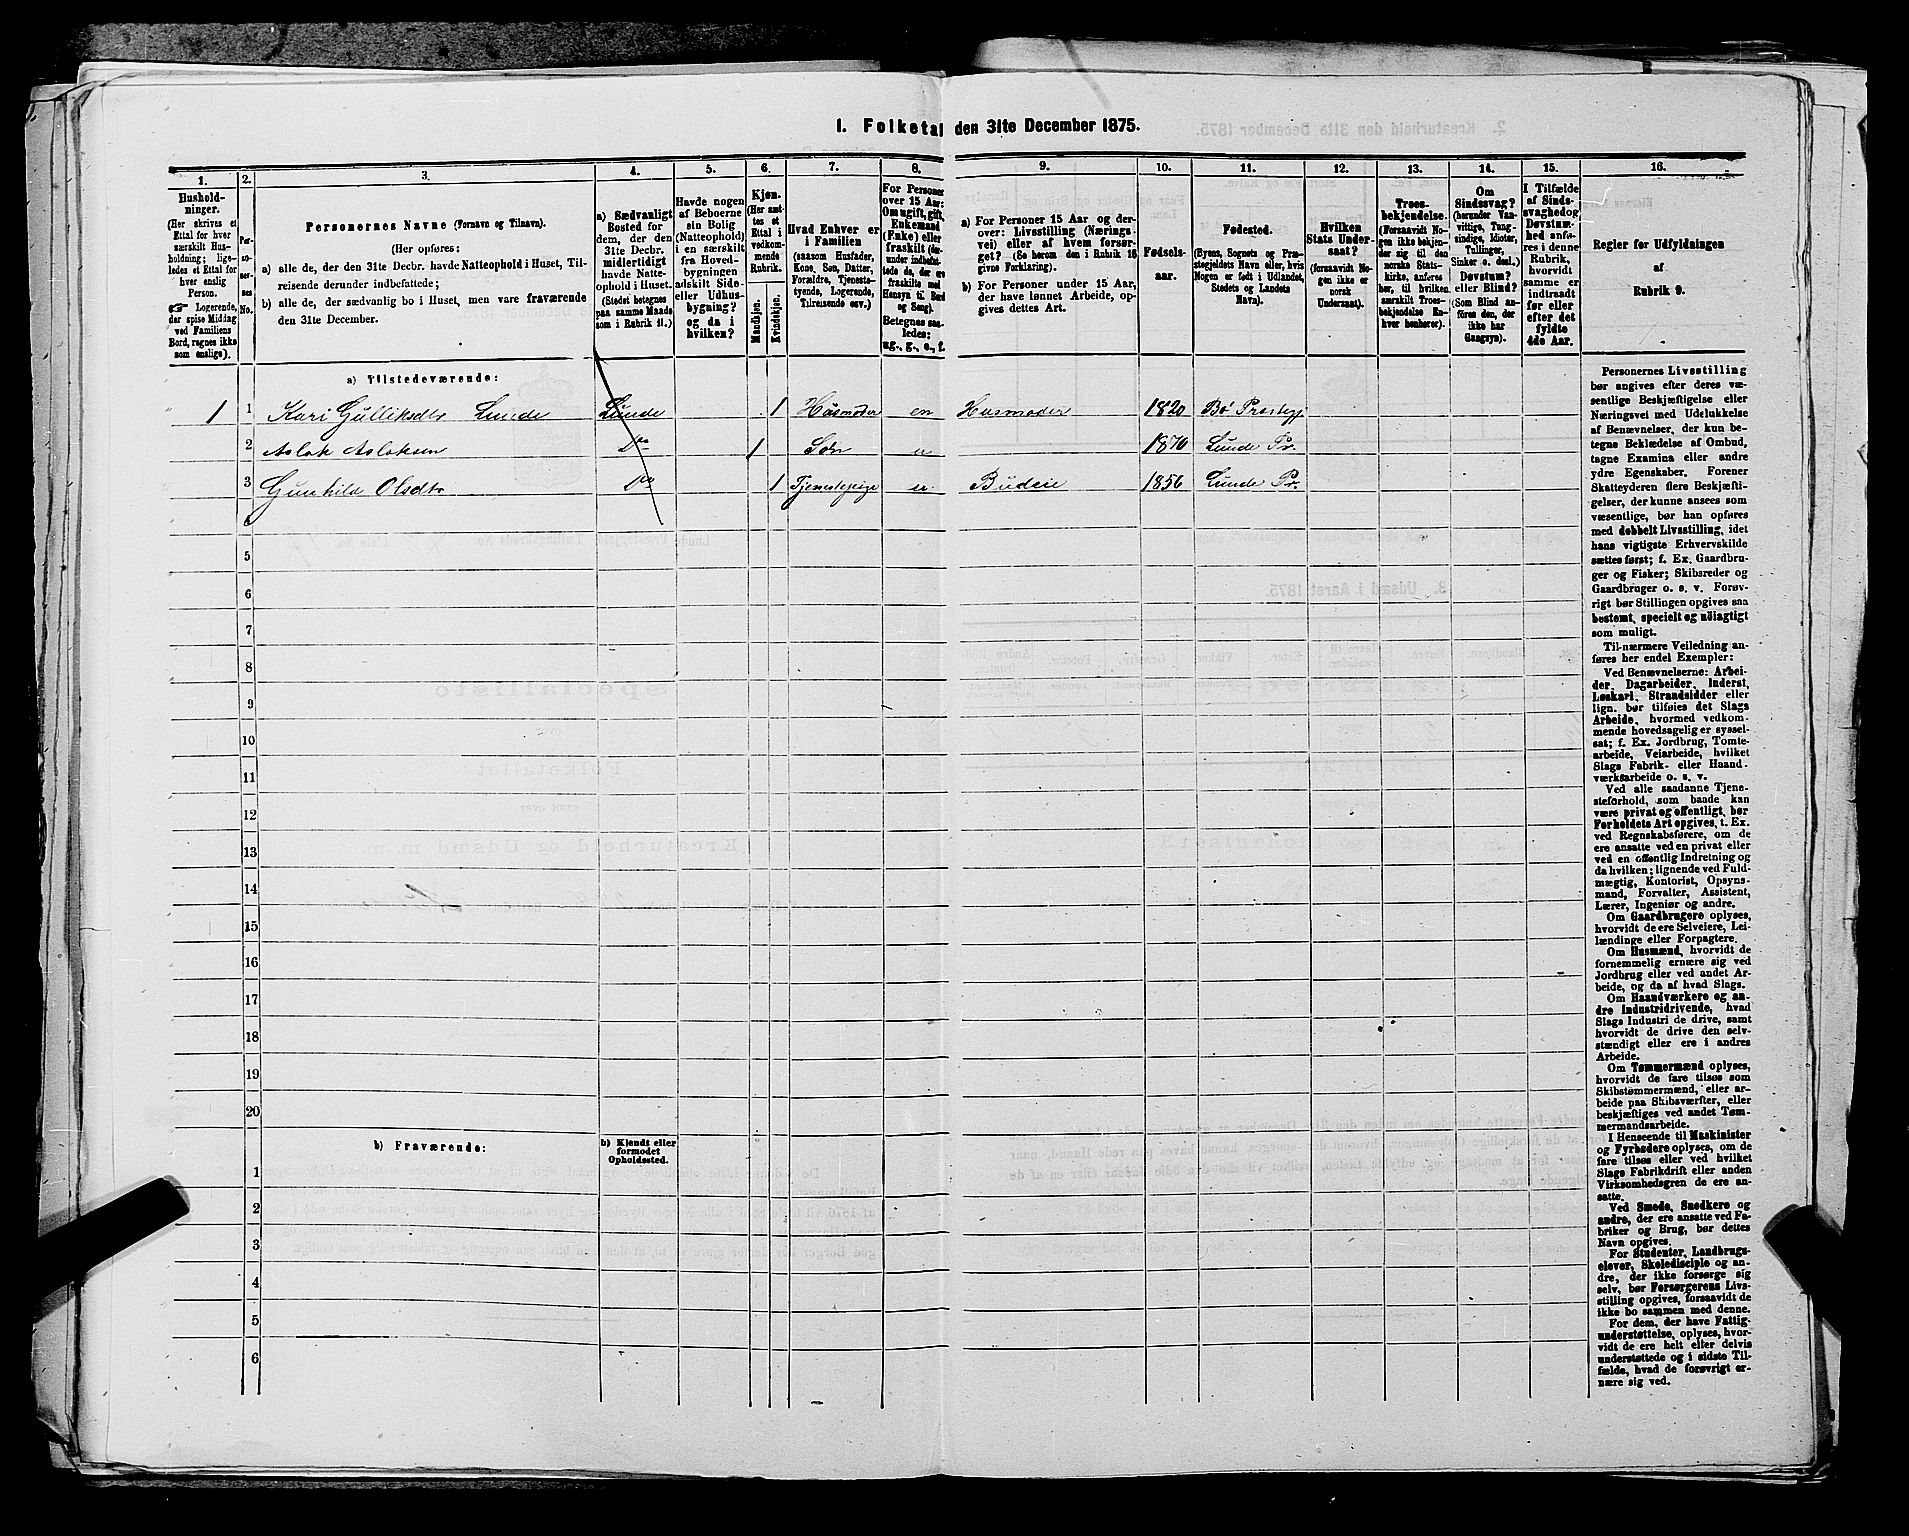 1. Folketal den 31te December 1875.
1.
2.
3.
4.
5.
6.
7.
8.
9.
10.
11.
12.
13.
14.
15.
16.
Hushold-
ninger.
(Her skrives et
Ettal for hver
særskilt Hus-
holdning; lige-
ledes et Ettal for
hver enslig
Person.
☞ Logerende,
der spise Middag
ved Familiens
Bord, regnes ikke
som enslige).
Per-
so-
ner-
nes
No.
Personernes Navne (Fornavn og Tilnavn).
(Her opføres:
a) alle de, der den 31te Decbr. havde Natteophold i Huset, Til-
reisende derunder indbefattede;
b) alle de, der sædvanlig bo i Huset, men vare fraværende
den 31te December.
a) Sædvanligt
Bosted for
dem, der den
31te Decbr.
midlertidigt
havde Natte-
ophold i Huset.
(Stedet betegnes
paa samme Maade
som i Rubrik 11.)
Havde nogen
af Beboerne
sin Bolig
(Natteophold)
i en særskilt
fra Hoved-
bygningen
adskilt Side-
eller Udhus-
bygning?
og da i
hvilken?
Kjøn.
(Her sæt-
tes et
Ettal i
vedkom-
mende
Rubrik.
Mandkjøn.
Kvindekjøn.
Hvad Enhver er
i Familien
(saasom Husfader,
Kone, Søn, Datter,
Forældre, Tjeneste-
tyende, Logerende,
Tilreisende osv.)
For Personer
over 15 Aar:
Om ugift, gift,
Enkemand
(Enke) eller
fraskilt (der-
under indbefat-
tede de, der ere
fraskilte med
Hensyn til Bord
og Seng).
Betegnes saa-
ledes:
ug., g., e., f.
a) For Personer 15 Aar og der-
over: Livsstilling (Nærings-
vei) eller af hvem forsør-
get? (Se herom den i Rubrik 16
givne Forklaring).
b) For Personer under 15 Aar,
der have lønnet Arbeide, op-
gives dettes Art.
Fødsels-
aar.
Fødested.
(Byens, Sognets og Præ-
stegjeldets Navn eller, hvis
Nogen er født i Udlandet,
Stedets og Landets
Navn).
Hvilken
Stats Under-
saat?
(forsaavidt No-
gen ikke er
norsk
Undersaat).
Troes-
bekjendelse.
(Forsaavidt No-
gen ikke bekjen-
der sig til den
norske Stats-
kirke, anføres
her, til hvilken
særskilt Troes-
bekjendelse En-
hver henhører).
Om
Sindssvag?
(herunder Van-
vittige, Tung-
sindige, Idioter,
Tullinger,
Sinker o. desl.)
Døvstum?
eller Blind?
(Som Blind an-
føres den, der
ikke har
Gangsyn).
I Tilfælde
af Sinds-
svaghed og
Døvstum-
hed anfø-
res i denne
Rubrik,
hvorvidt
samme er
indtraadt
før eller
efter det
fyldte
4de Aar.
Regler for Udfyldningen
af
Rubrik 9.
a) Tilstedeværende:
1 1 Kari Gulliksdtr Lunde Lunde 1 Husmoder en Husmoder 1820 Bø Prestegj
2 Aslak Aslaksen Do 1 Søn u 1870 Lunde Pr.
3 Gunhild Olsdtr Do 1 Tjenestepige u Budeie 1856 Lunde Pr.
5
6
7
8
9
10
11
12
13
14
15
16
17
18
19
20
b) Fraværende:
b) Kjendt eller
formodet
Opholdssted.
1
2
3
4
5
6
Personernes Livsstilling
bør angives efter deres væ-
sentlige Beskjæftigelse eller
Næringsvei med Udelukkelse
af Benævnelser, der kun be-
tegne Beklædelse af Ombud,
tagne Examina eller andre
ydre Egenskaber. Forener
Skatteyderen flere Beskjæfti-
gelser, der kunne ansees som
væsentlige, bør han opføres
med dobbelt Livsstilling, idet
hans vigtigste Erhvervskilde
sættes først; f. Ex. Gaardbru-
ger og Fisker; Skibsreder og
Gaardbruger o. s. v. Forøv-
rigt bør Stillingen opgives saa
bestemt, specielt og nöiagtigt
som muligt.
Til nærmere Veiledning an-
føres her endel Exempler:
Ved Benævnelserne: Arbei-
der, Dagarbeider, Inderst,
Løskarl, Strandsidder eller
lign. bør tilføies det Slags
Arbeide, hvormed vedkom-
mende hovedsagelig er syssel-
sat; f. Ex. Jordbrug, Tomte-
arbeide, Veiarbeide, hvilket
Slags Fabrik- eller Haand-
værksarbeide o. s. v.
Ved alle saadanne Tjene-
steforhold, som baade kan
være privat og offentligt, bør
Forholdets Art opgives, t. Ex.
ved Regnskabsførere, om de
ere ansatte ved en privat eller
ved en offentlig Indretning og
da hvilken; lignende ved Fuld-
mægtig, Kontorist, Opsyns-
mand, Forvalter, Assistent,
Lærer, Ingeniør og andre.
Om Gaardbrugere oplyses,
hvorvidt de ere Selveiere, Lei-
lændinge eller Forpagtere.
Om Husmænd, hvorvidt de
fornemmelig ernære sig ved
Jordbrug eller ved andet Ar-
beide, og da af hvad Slags.
Om Haandværkere og an-
dre Industridrivende, hvad
Slags Industri de drive, samt
hvorvidt de drive den selv-
stændigt eller ere i andres
Arbeide.
Om Tømmermænd oplyses,
hvorvidt de fare tilsøs som
Skibstømmermænd, eller ar-
beide paa Skibsværfter, eller
beskjæftiges ved andet Tøm-
mermandsarbeide.
I Henseende til Maskinister
og Fyrbødere oplyses, om de
fare tilsøs eller ved hvilket
Slags Fabrikdrift eller anden
Virksomhedsgren de ere an-
satte.
Ved Smede, Snedkere og
andre, der ere ansatte ved Fa-
briker og Brug, bør dettes
Navn opgives.
For Studenter, Landbrugs-
elever, Skoledisciple og an-
dre, der ikke forsørge sig
selv, bør Forsørgerens Livs-
stilling opgives, forsaavidt de
ikke bo sammen med denne.
For dem, der have Fattig-
understøttelse, oplyses, hvor-
vidt de ere helt eller delvis
understøttede og i sidste Til-
fælde, hvad de forøvrigt er-
nære sig ved.